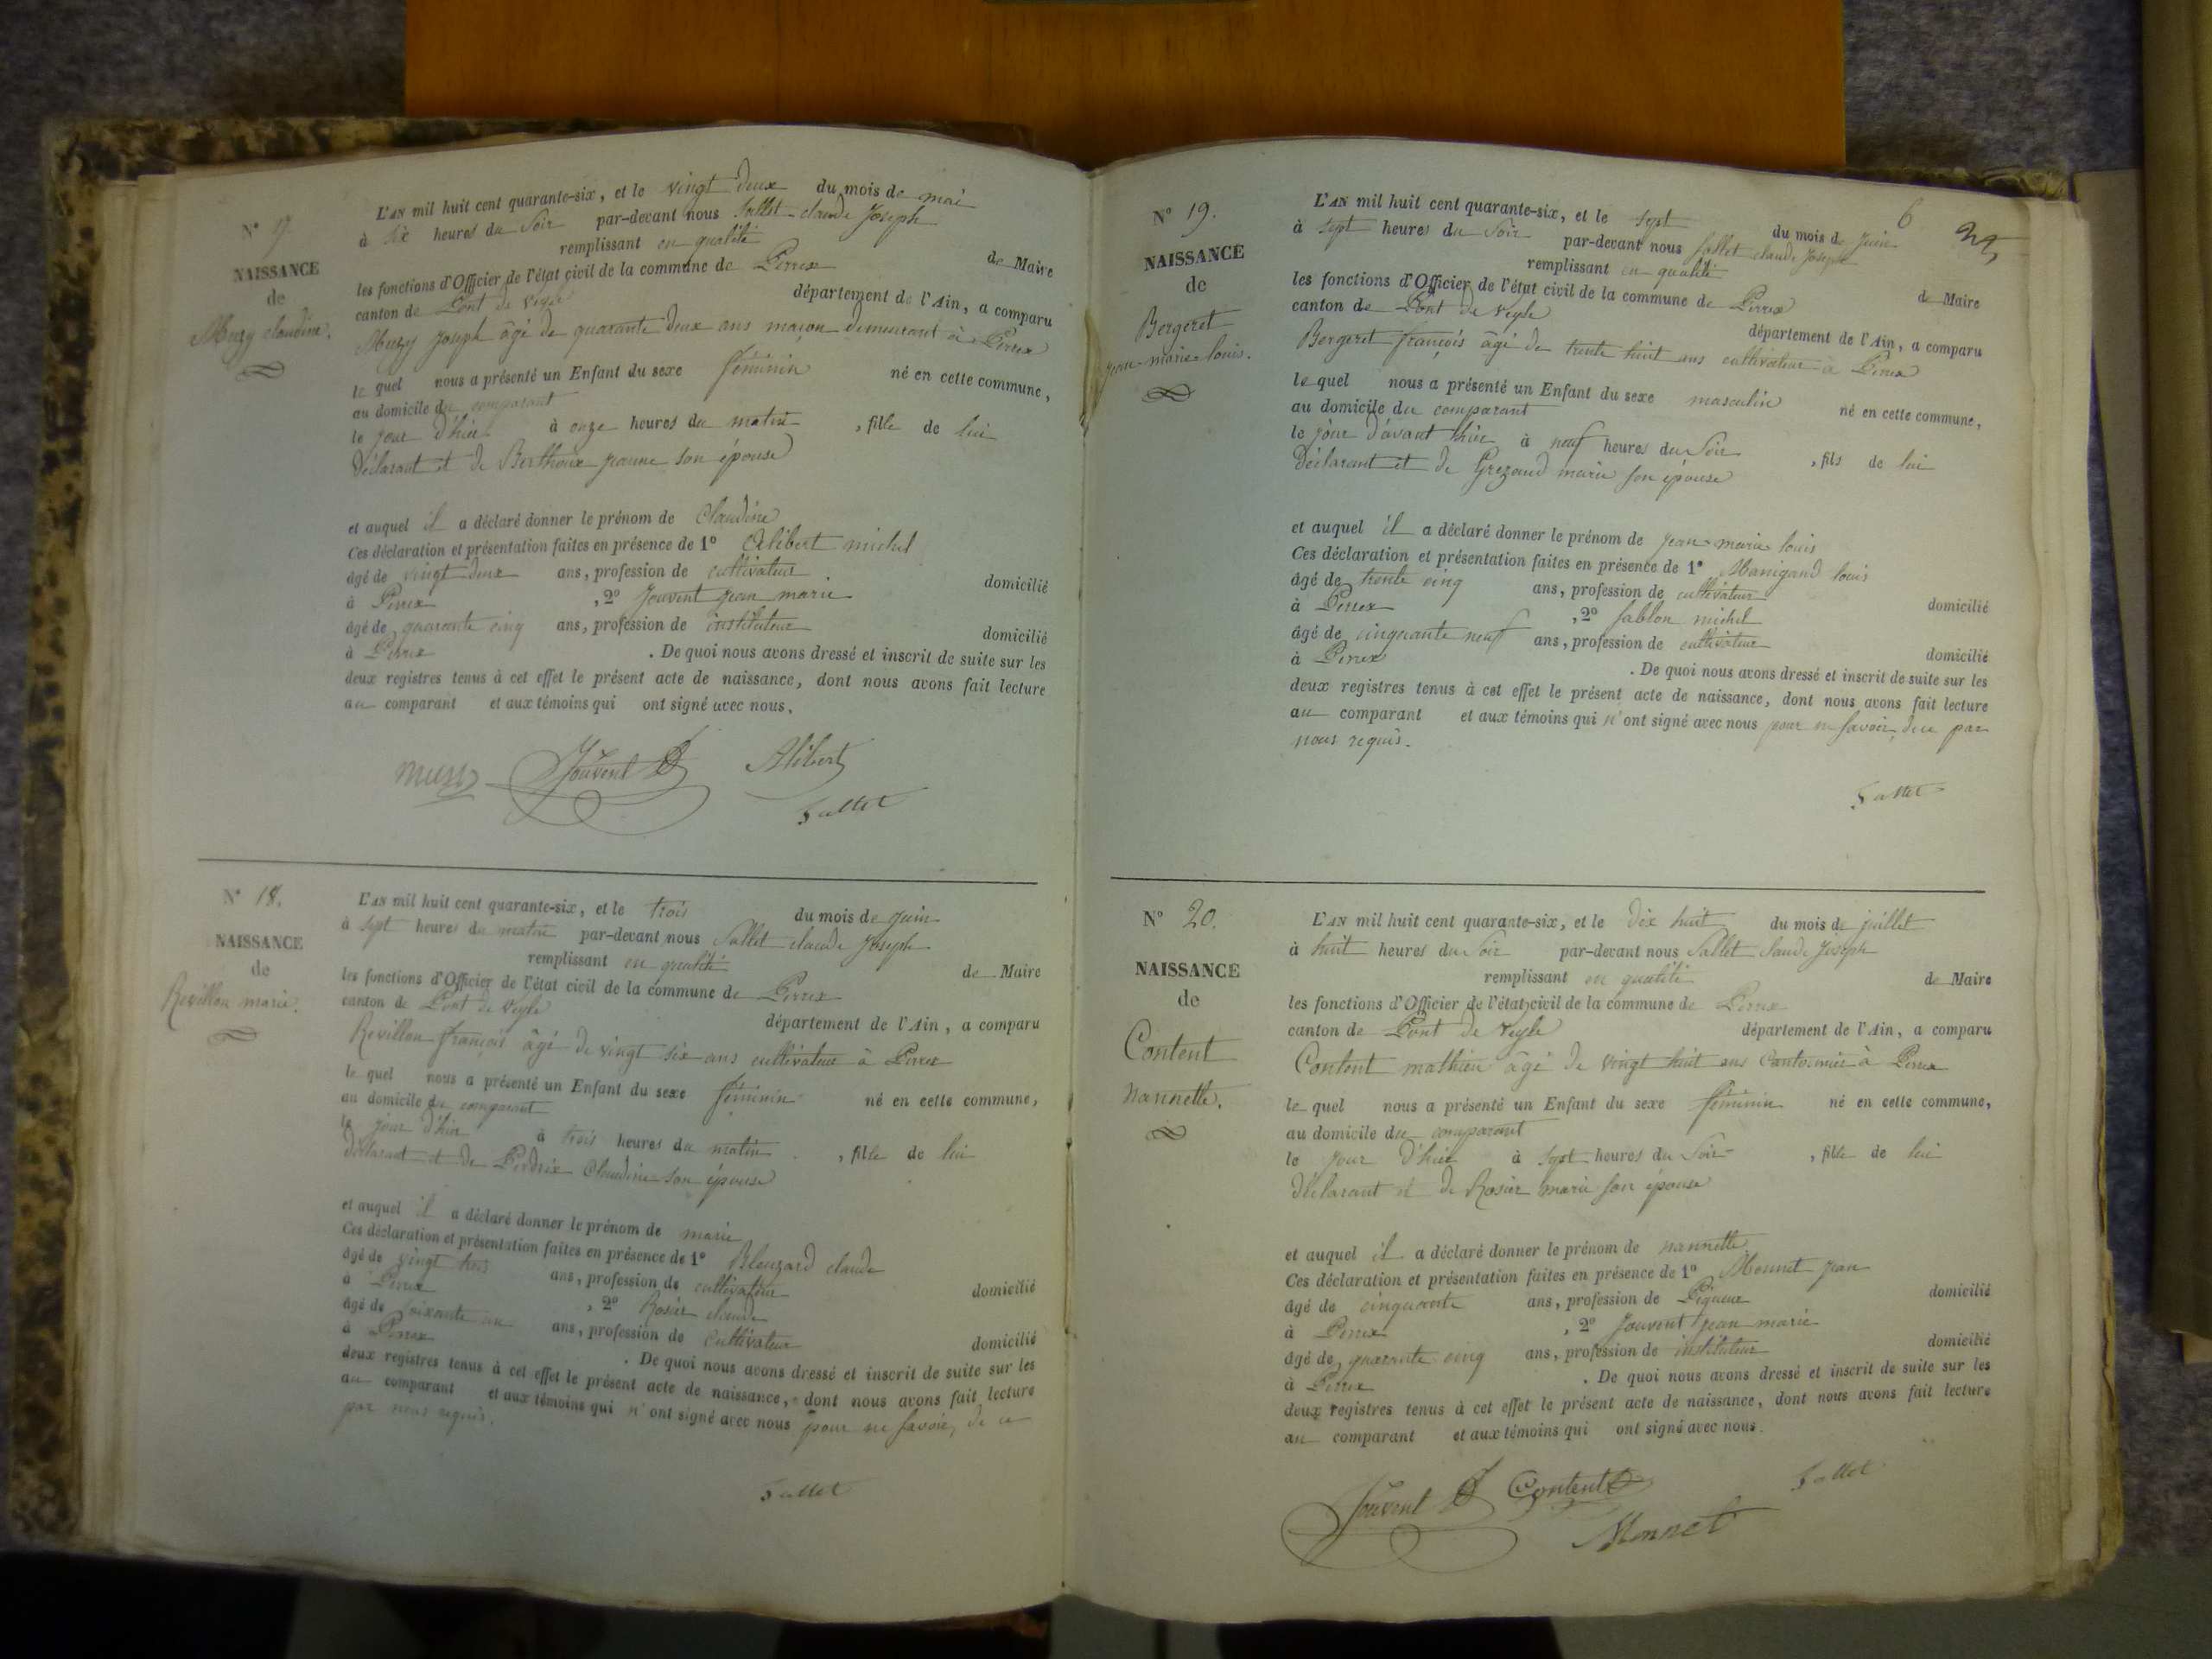 N° 17.
NAISSANCE
de
Muzy claudine.
L'AN mil huit cent quarante-six, et le vingt deux du mois de mai
à six heures du Soir par-devant nous Sallet claude Joseph
remplissant en qualité de Maire
les fonctions d'Officier de l'état civil de la commune de Perrex
canton de Pont de Veyle département de l'Ain, a comparu
Muzy Joseph âgé de quarante deux ans maçon demeurant à Perrex
le quel nous a présenté un Enfant du sexe féminin né en cette commune,
au domicile du comparant
le jour d'hier à onze heures du matin , fille de lui
déclarant et de Berthoux jeanne son épouse
et auquel il a déclaré donner le prénom de Claudine
Ces déclaration et présentation faites en présence de 1° Alibert michel
âgé de vingt deux ans, profession de cultivateur domicilié
à Perrex , 2° Jouvent jean marie
âgé de quarante cinq ans, profession de instituteur domicilié
à Perrex . De quoi nous avons dressé et inscrit de suite sur les
deux registres tenus à cet effet le présent acte de naissance, dont nous avons fait lecture
au comparant et aux témoins qui ont signé avec nous.
muzy Jouvent Alibert
Sallet
N° 18.
NAISSANCE
de
Revillon marie.
L'AN mil huit cent quarante-six, et le trois du mois de juin
à sept heures du matin par-devant nous Sallet claude Joseph
remplissant en qualité de Maire
les fonctions d'Officier de l'état civil de la commune de Perrex
canton de Pont de Veyle département de l'Ain, a comparu
Revillon françois âgé de vingt six ans cultivateur à Perrex
le quel nous a présenté un Enfant du sexe féminin né en cette commune,
au domicile du comparant
le jour d'hier à trois heures du matin , fille de lui
déclarant et de Perdrix Claudine son épouse
et auquel il a déclaré donner le prénom de marie
Ces déclaration et présentation faites en présence de 1° Blouzard claude
âgé de vingt trois ans, profession de cultivateur domicilié
à Perrex , 2° Rosier claude
âgé de soixante un ans, profession de cultivateur domicilié
à Perrex . De quoi nous avons dressé et inscrit de suite sur les
deux registres tenus à cet effet le présent acte de naissance, dont nous avons fait lecture
au comparant et aux témoins qui n'ont signé avec nous pour ne savoir, de ce
par nous requis.
Sallet
6
N° 19.
NAISSANCE
de
Bergeret
jean-marie-louis.
L'AN mil huit cent quarante-six, et le sept du mois de juin
à sept heures du Soir par-devant nous Sallet claude Joseph
remplissant en qualité de Maire
les fonctions d'Officier de l'état civil de la commune de Perrex
canton de Pont de Veyle département de l'Ain, a comparu
Bergeret françois âgé de trente huit ans cultivateur à Perrex
le quel nous a présenté un Enfant du sexe masculin né en cette commune,
au domicile du comparant
le jour d'avant hier à neuf heures du Soir , fils de lui
déclarant et de Grezaud marie son épouse
et auquel il a déclaré donner le prénom de jean-marie louis
Ces déclaration et présentation faites en présence de 1° Manigand louis
âgé de trente cinq ans, profession de cultivateur domicilié
à Perrex , 2° Sablon michel
âgé de cinquante neuf ans, profession de cultivateur domicilié
à Perrex . De quoi nous avons dressé et inscrit de suite sur les
deux registres tenus à cet effet le présent acte de naissance, dont nous avons fait lecture
au comparant et aux témoins qui n'ont signé avec nous pour ne savoir, due par
nous requis.
Sallet
N° 20.
NAISSANCE
de
Content
nannette.
L'AN mil huit cent quarante-six, et le dix huit du mois de juillet
à huit heures du Soir par-devant nous Sallet claude Joseph
remplissant en qualité de Maire
les fonctions d'Officier de l'état civil de la commune de Perrex
canton de Pont de Veyle département de l'Ain, a comparu
Content mathieu âgé de vingt huit ans Cantonnier à Perrex
le quel nous a présenté un Enfant du sexe féminin né en cette commune,
au domicile du comparant
le jour d'hier à sept heures du Soir , fille de lui
déclarant et de Rosier marie son épouse
et auquel il a déclaré donner le prénom de nannette
Ces déclaration et présentation faites en présence de 1° Monnet jean
âgé de cinquante ans, profession de Piqueur domicilié
à Perrex , 2° Jouvent jean marie
âgé de quarante cinq ans, profession de instituteur domicilié
à Perrex . De quoi nous avons dressé et inscrit de suite sur les
deux registres tenus à cet effet le présent acte de naissance, dont nous avons fait lecture
au comparant et aux témoins qui ont signé avec nous.
Jouvent Content Sallet
Monnet